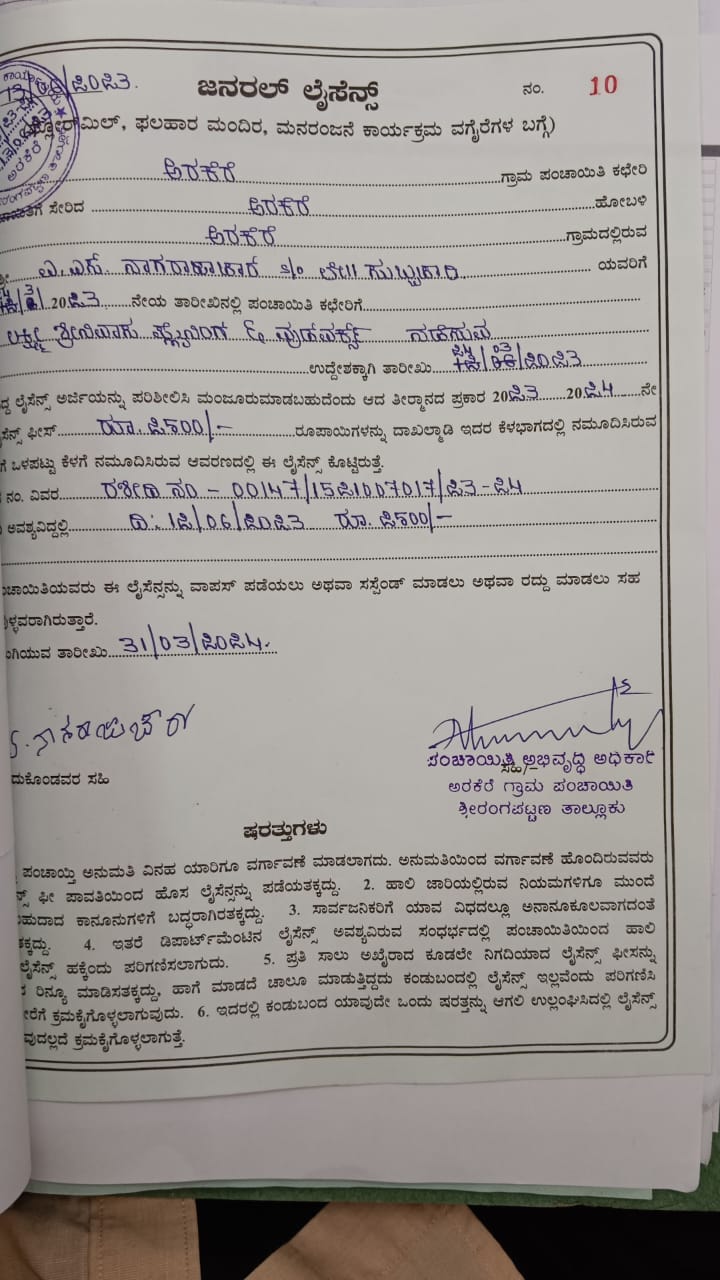 ಜನರಲ್ ಲೈಸೆನ್ಸ್ ನಂ. 10
ಮಿಲ್, ಫಲಹಾರ ಮಂದಿರ, ಮನರಂಜನೆ ಕಾರ್ಯಕ್ರಮ ವಗೈರೆಗಳ ಬಗ್ಗೆ)
ಅರಕೆರೆ ಗ್ರಾಮ ಪಂಚಾಯಿತಿ ಕಛೇರಿ
ಸೇರಿದ ಅರಕೆರೆ ಹೋಬಳಿ
ಅರಕೆರೆ ಗ್ರಾಮದಲ್ಲಿರುವ
ನಾಗರಾಜಾಚಾರ್ ಯವರಿಗೆ
20೨೩ ನೇಯ ತಾರೀಖಿನಲ್ಲಿ ಪಂಚಾಯಿತಿ ಕಛೇರಿಗೆ
ಲಕ್ಷ್ಮೀ ಶ್ರೀನಿವಾಸ ನಡೆಸುವ
ಉದ್ದೇಶಕ್ಕಾಗಿ ತಾರೀಖು ೨೪/03/೨೦೨೩
ಲೈಸೆನ್ಸ್ ಅರ್ಜಿಯನ್ನು ಪರಿಶೀಲಿಸಿ ಮಂಜೂರುಮಾಡಬಹುದೆಂದು ಆದ ತೀರ್ಮಾನದ ಪ್ರಕಾರ 20೨೩ 20೨೪ ನೇ
ಫೀಸ್ ರೂ. ೨500/- ರೂಪಾಯಿಗಳನ್ನು ದಾಖಲ್ಮಾಡಿ ಇದರ ಕೆಳಭಾಗದಲ್ಲಿ ನಮೂದಿಸಿರುವ
ಒಳಪಟ್ಟು ಕೆಳಗೆ ನಮೂದಿಸಿರುವ ಆವರಣದಲ್ಲಿ ಈ ಲೈಸೆನ್ಸ್ ಕೊಟ್ಟಿರುತ್ತೆ.
ನಂ. ವಿವರ ರಶೀದಿ ನಂ - 00147/15೨1007017/೨೩-೨೪
ಅವಶ್ಯವಿದ್ದಲ್ಲಿ ದಿ: 1೨/06/೨೦೨೩ ರೂ. ೨500/-
ಪಂಚಾಯಿತಿಯವರು ಈ ಲೈಸೆನ್ಸನ್ನು ವಾಪಸ್ ಪಡೆಯಲು ಅಥವಾ ಸಸ್ಪೆಂಡ್ ಮಾಡಲು ಅಥವಾ ರದ್ದು ಮಾಡಲು ಸಹ
ಳ್ಳವರಾಗಿರುತ್ತಾರೆ.
ಗಿಯುವ ತಾರೀಖು 31/03/೨೦೨೪.
ದುಕೊಂಡವರ ಸಹಿ
ಪಂಚಾಯಿತಿ ಅಭಿವೃದ್ಧಿ ಅಧಿಕಾರಿ
ಅರಕೆರೆ ಗ್ರಾಮ ಪಂಚಾಯಿತಿ
ಶ್ರೀರಂಗಪಟ್ಟಣ ತಾಲ್ಲೂಕು
ಷರತ್ತುಗಳು
ಪಂಚಾಯ್ತಿ ಅನುಮತಿ ವಿನಹ ಯಾರಿಗೂ ವರ್ಗಾವಣೆ ಮಾಡಲಾಗದು. ಅನುಮತಿಯಿಂದ ವರ್ಗಾವಣೆ ಹೊಂದಿರುವವರು
ನ್ಸ್ ಫೀ ಪಾವತಿಯಿಂದ ಹೊಸ ಲೈಸೆನ್ಸನ್ನು ಪಡೆಯತಕ್ಕದ್ದು. 2. ಹಾಲಿ ಜಾರಿಯಲ್ಲಿರುವ ನಿಯಮಗಳಿಗೂ ಮುಂದೆ
ಹುದಾದ ಕಾನೂನುಗಳಿಗೆ ಬದ್ಧರಾಗಿರತಕ್ಕದ್ದು. 3. ಸಾರ್ವಜನಿಕರಿಗೆ ಯಾವ ವಿಧದಲ್ಲೂ ಅನಾನೂಕೂಲವಾಗದಂತೆ
ತಕ್ಕದ್ದು. 4. ಇತರೆ ಡಿಪಾರ್ಟ್‌ಮೆಂಟಿನ ಲೈಸೆನ್ಸ್ ಅವಶ್ಯವಿರುವ ಸಂಧರ್ಭದಲ್ಲಿ ಪಂಚಾಯಿತಿಯಿಂದ ಹಾಲಿ
ಲೈಸೆನ್ಸ್ ಹಕ್ಕೆಂದು ಪರಿಗಣಿಸಲಾಗುದು. 5. ಪ್ರತಿ ಸಾಲು ಅಖೈರಾದ ಕೂಡಲೇ ನಿಗದಿಯಾದ ಲೈಸೆನ್ಸ್ ಫೀಸನ್ನು
ರಿನ್ಯೂ ಮಾಡಿಸತಕ್ಕದ್ದು, ಹಾಗೆ ಮಾಡದೆ ಚಾಲೂ ಮಾಡುತ್ತಿದ್ದದು ಕಂಡುಬಂದಲ್ಲಿ ಲೈಸೆನ್ಸ್ ಇಲ್ಲವೆಂದು ಪರಿಗಣಿಸಿ
ರೆಗೆ ಕ್ರಮಕೈಗೊಳ್ಳಲಾಗುವುದು. 6. ಇದರಲ್ಲಿ ಕಂಡುಬಂದ ಯಾವುದೇ ಒಂದು ಷರತ್ತನ್ನು ಆಗಲಿ ಉಲ್ಲಂಘಿಸಿದಲ್ಲಿ ಲೈಸೆನ್ಸ್
ವುದಲ್ಲದೆ ಕ್ರಮಕೈಗೊಳ್ಳಲಾಗುತ್ತೆ.